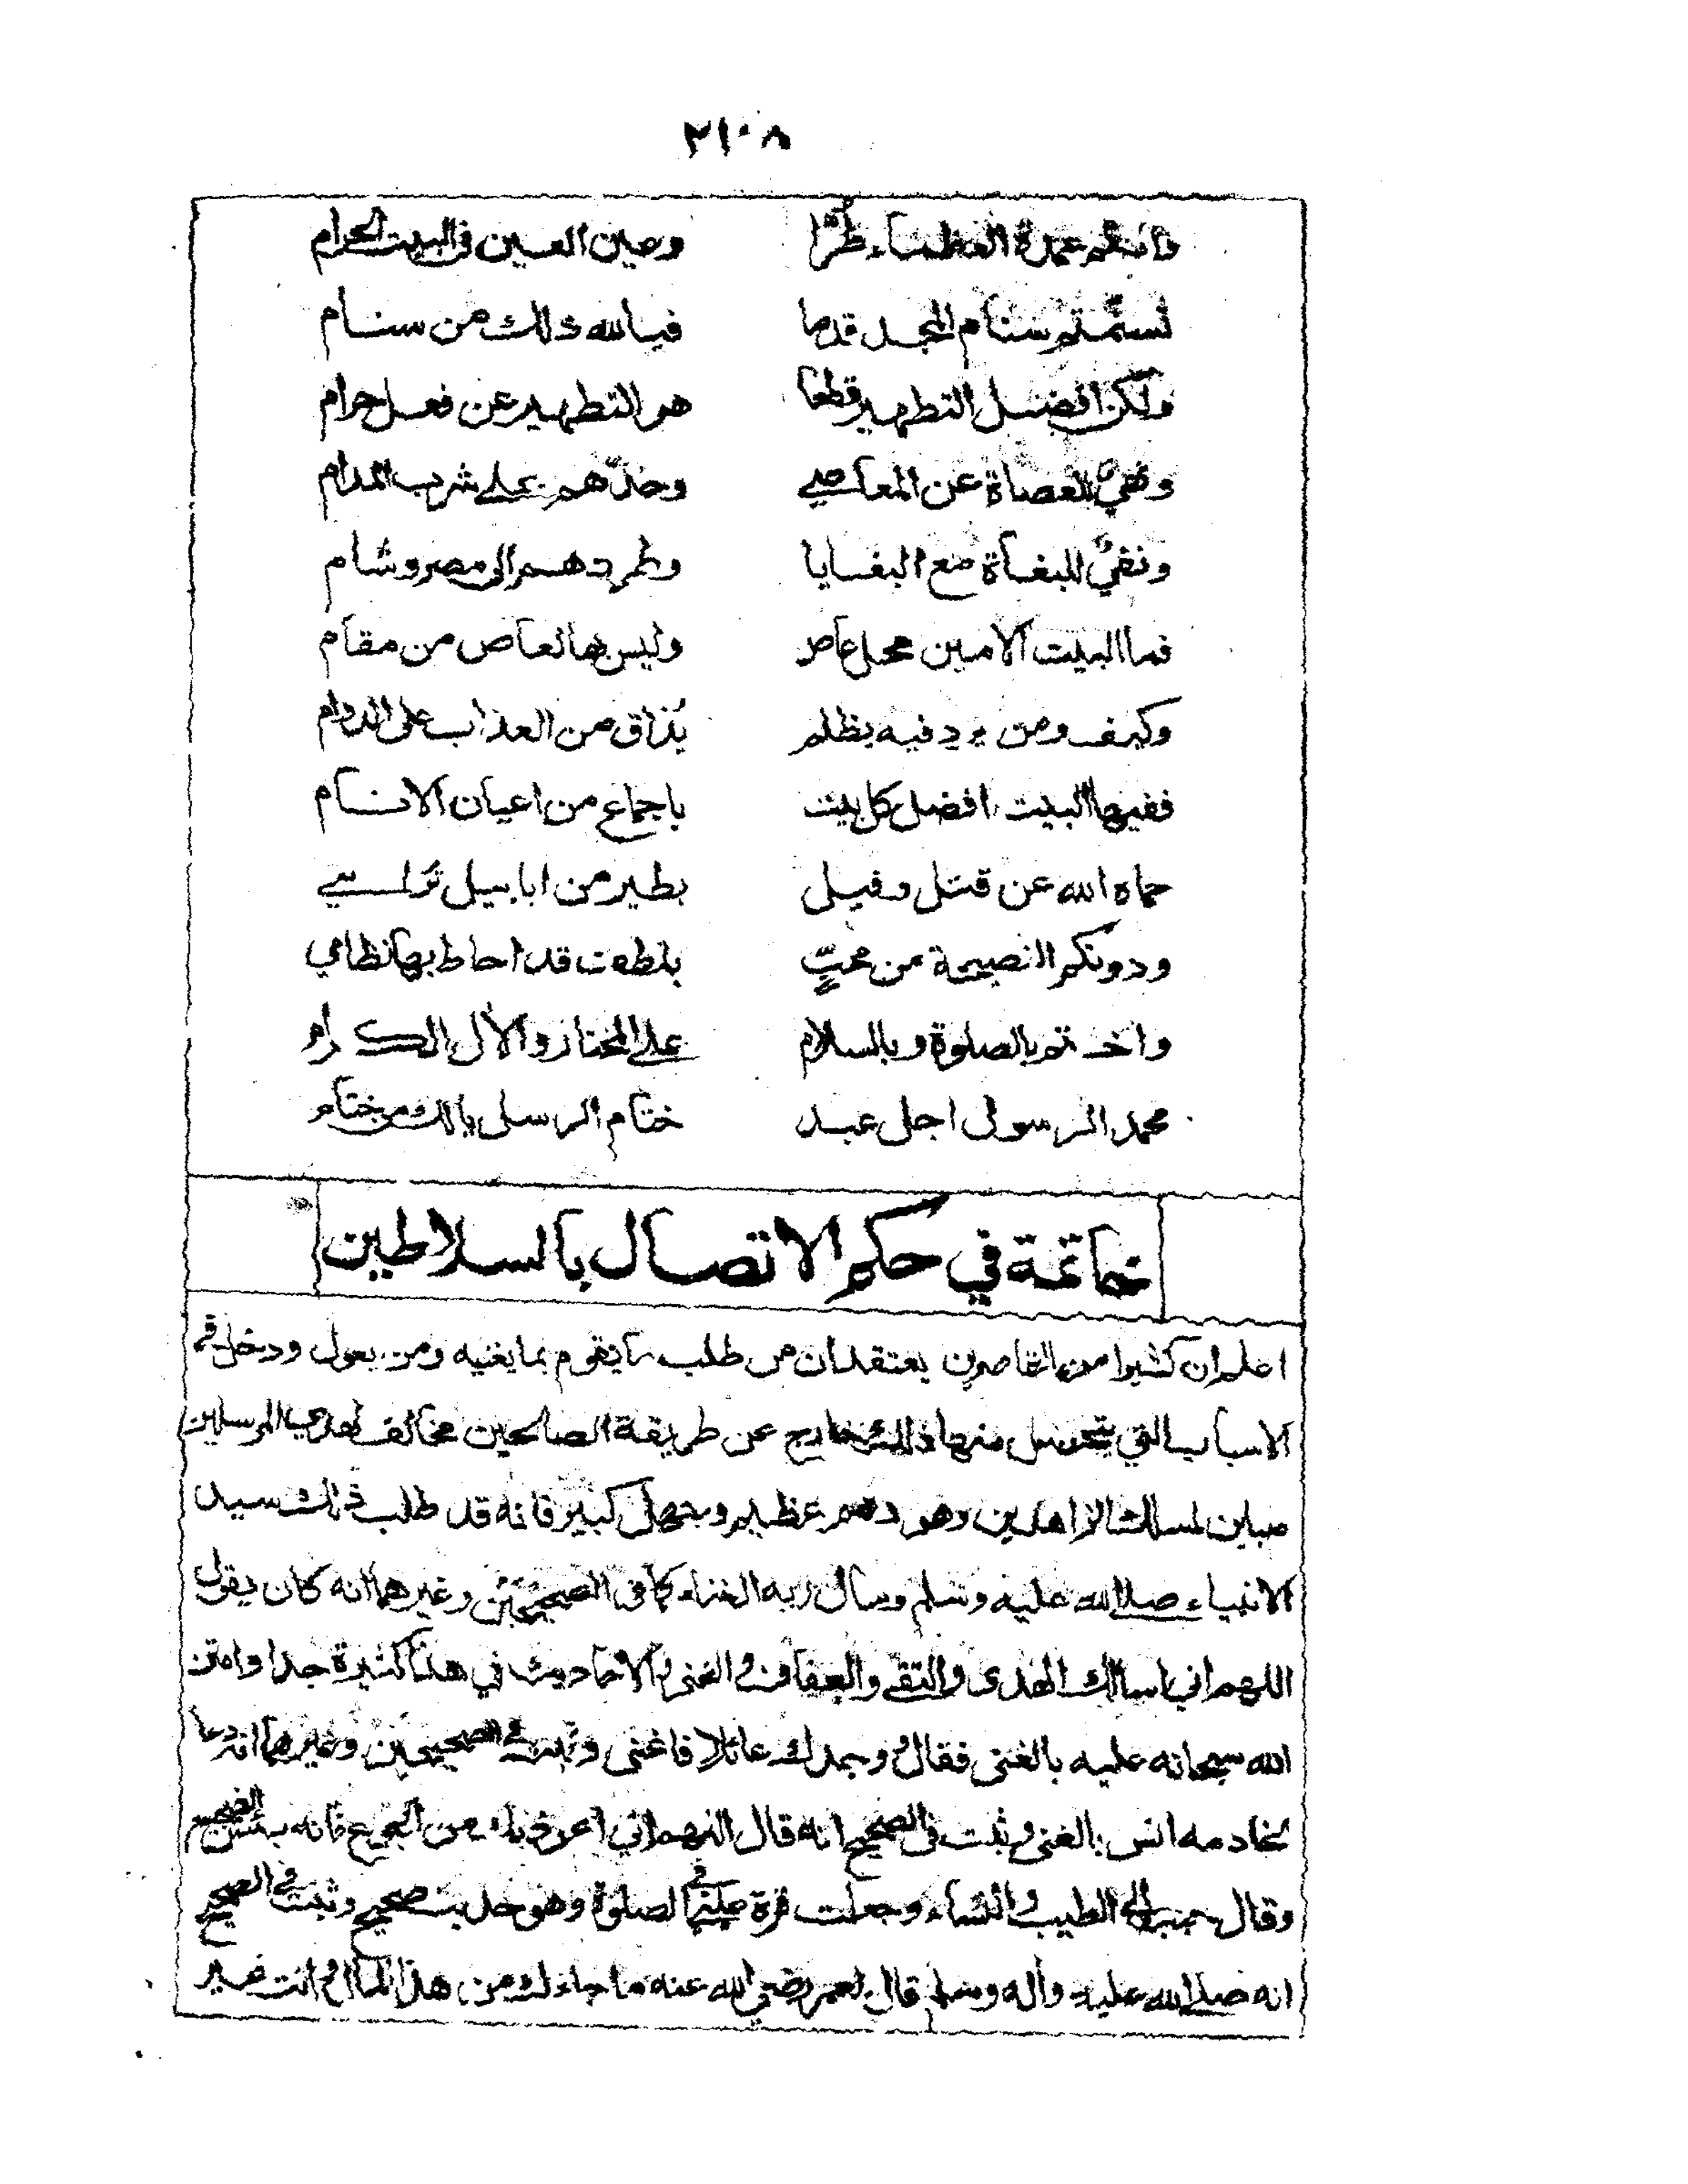 ٢١٠٨
وانتم عمدة العظماء طرا وعين العين في البيت الحرام
تسنمتم سنام المجد قدما فيالله ذلك من سنام
ولكن افضل التطهير قطعا هو التطهير عن فعل حرام
ونهي للعصاة عن المعاصي وحدهم على شرب المدام
ونفي للبغاة مع البغايا وطردهم الى مصر وشام
فما البيت الامين محل عاص وليس بها لعاص من مقام
وكيف ومن يرد فيه بظلم يذاق من العذاب على الدوام
ففيها البيت افضل كل بيت باجماع من اعيان الانام
حماه الله عن قتل وفيل بطير من ابابيل ترامي
ودونكم النصيحة من محبٍّ بلطف قد احاط بها نظامي
واختم بالصلوة وبالسلام على المختار والآل الكرام
محمد الرسول اجل عبد ختام الرسل يالك من ختام
خاتمة في حكم الاتصال بالسلاطين
اعلم ان كثيرا من القاصرين يعتقد ان من طلب ما يقوم بما يغنيه ومن يعول ودخل في
الاسباب التي يتحصل منها ذلك خارج عن طريقة الصالحين مخالف لهدي المرسلين
مباين لمسلك الزاهدين وهو وهم عظيم وجهل كبير فانه قد طلب ذلك سيد
الانبياء صلى الله عليه وسلم وسأل ربه الغناء كما في الصحيحين وغيرهما انه كان يقول
اللهم اني اسالك الهدى والتقى والعفاف والغنى والاحاديث في هذا كثيرة جدا وامتن
الله سبحانه عليه بالغنى فقال ووجدك عائلا فاغنى وثبت في الصحيحين وغيرهما انه دعا
لخادمه انس بالغنى وثبت في الصحيح انه قال اللهم اني اعوذ بك من الجوع فانه بئس الضجيع
وقال حبب الي الطيب والنساء وجعلت قرة عيني في الصلوة وهو حديث صحيح وثبت في الصحيح
انه صلى الله عليه وآله وسلم قال لعمر رضي الله عنه ما جاءك من هذا المال وانت غير